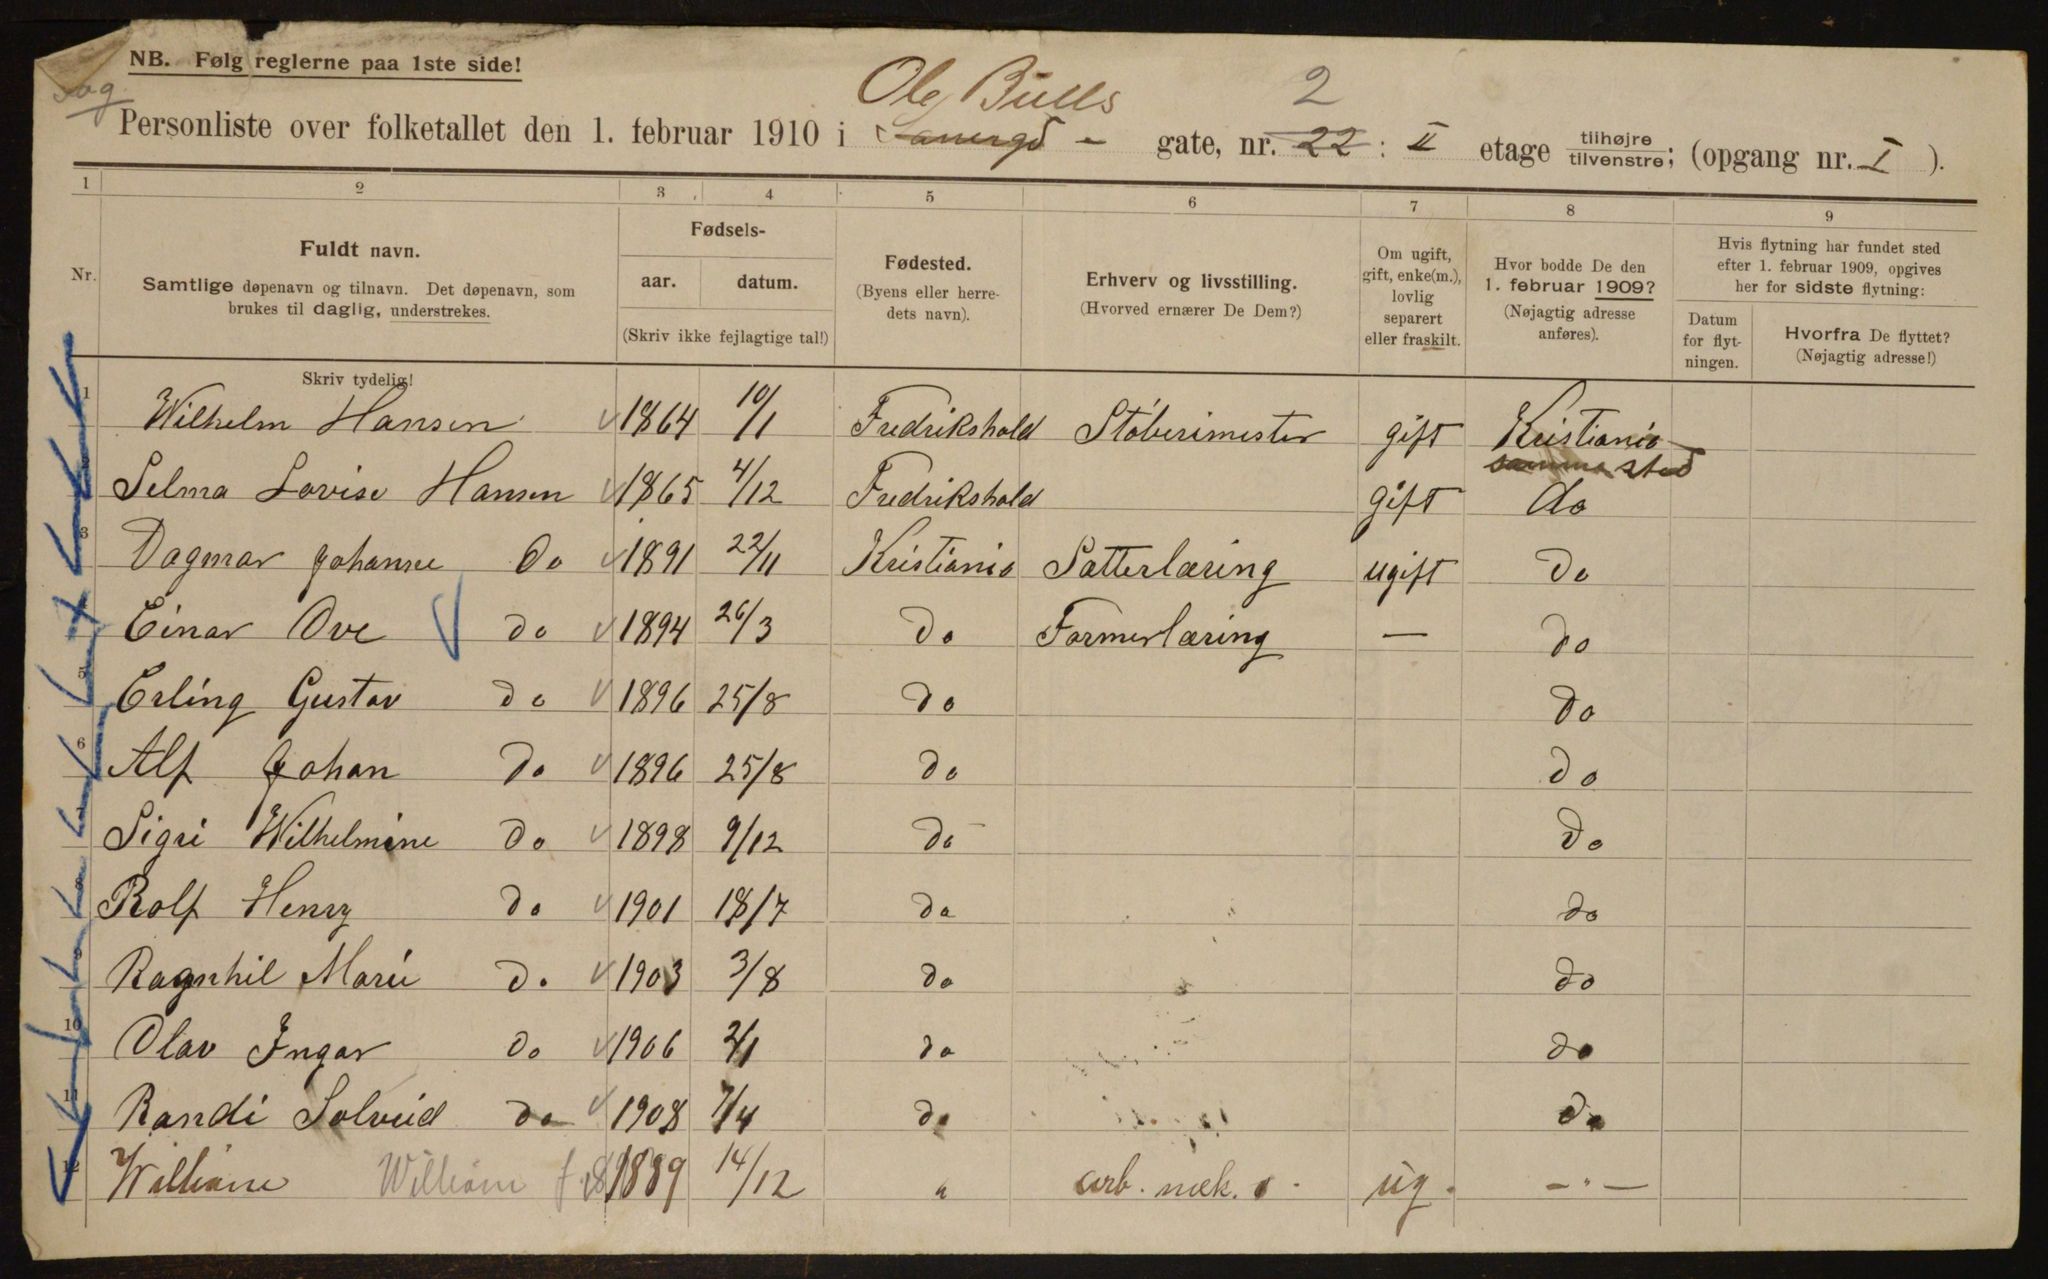 NB. Følg reglerne paa 1ste side!
Ole Bulls 2
Personliste over folketallet den 1. februar 1910 i gate, nr. 22 : II etage tilhøjre tilvenstre; (opgang nr. I ).
1 2 3 4 5 6 7 8 9
Nr.
Fuldt navn.
Samtlige døpenavn og tilnavn. Det døpenavn, som
brukes til daglig, understrekes.
Skriv tydelig!
Fødsels-
aar. datum.
(Skriv ikke fejlagtige tal!)
Fødested.
(Byens eller herre-
dets navn).
Erhverv og livsstilling.
(Hvorved ernærer De Dem?)
Om ugift,
gift, enke(m.),
lovlig
separert
eller fraskilt.
Hvor bodde De den
1. februar 1909?
(Nøjagtig adresse
anføres).
Hvis flytning har fundet sted
efter 1. februar 1909, opgives
her for sidste flytning:
Datum
for flyt-
ningen.
Hvorfra De flyttet?
(Nøjagtig adresse!)
1 Wilhelm Hansen 1864 10/1 Fredrikshald Støberimester gift Kristiania
samme sted
Selma Lovise Hansen 1865 4/12 Fredrikshald gift do
3 Dagmar Johanne Do 1891 22/11 Kristiania Satterlæring ugift Do
Einar Ove do 1894 26/3 Do Formerlæring — do
5 Erling Gustav do 1896 25/8 do do
6 Alf Johan do 1896 25/8 do do
Sigri Wilhelmine do 1898 9/12 do do
8 Rolf Henry do 1901 18/7 do do
9 Ragnhil Marie do 1903 3/8 do do
10 Olav Ingar do 1906 2/1 do do
11 Randi Solveid do 1908 7/4 do do
12 William William f. 1889 14/12 " arb. mek. ug. — " —